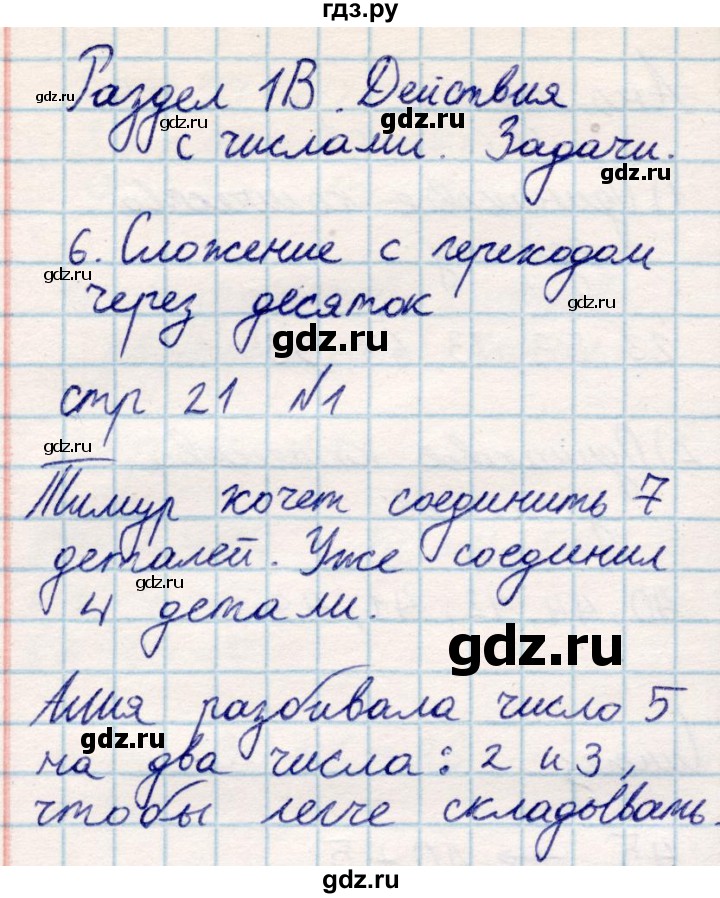 гдз.ру
Раздел 1В. Действия
с числами. Задачи.
6. Сложение с переходом
через десяток
стр 21 №1
Тимур хочет соединить 7
деталей. Уже соединил
4 детали.
Алия разбивала число 5
на два числа: 2 и 3,
чтобы легче складывать.
gdz.ru
gdz.ru
gdz.ru
gdz.ru
gdz.ru
gdz.ru
gdz.ru
gdz.ru
gdz.ru
gdz.ru
gdz.ru
gdz.ru
gdz.ru